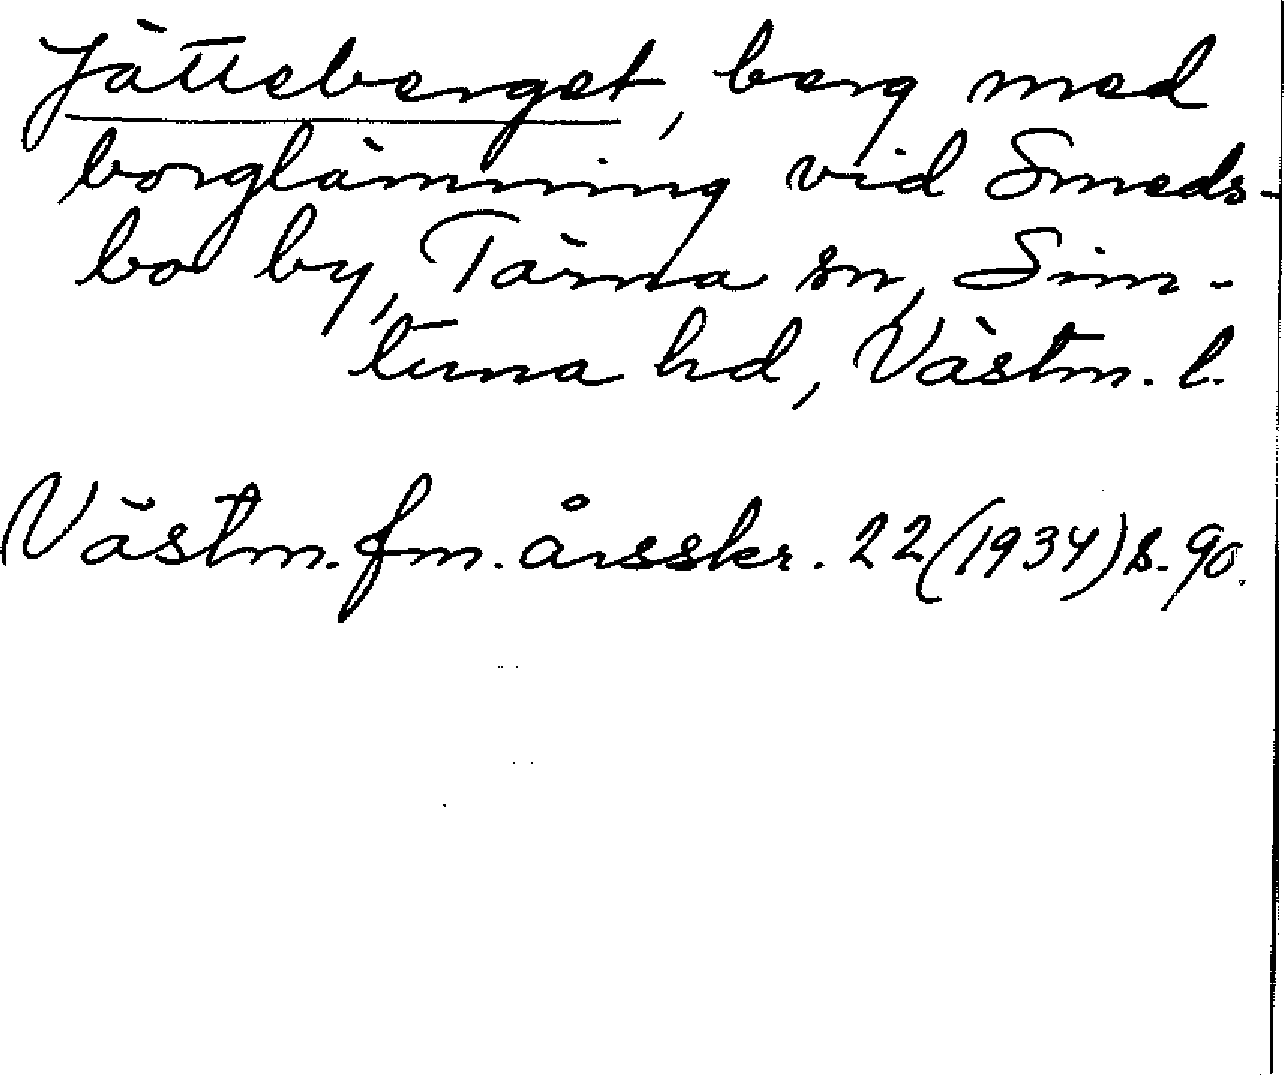 Jätteberget, berg med
borglämning vid Smeds-
bo by, Tärna sn, Sim-
tuna hd, Västm. l.
Västm. fm. årsskr. 22 (1934) s. 90.